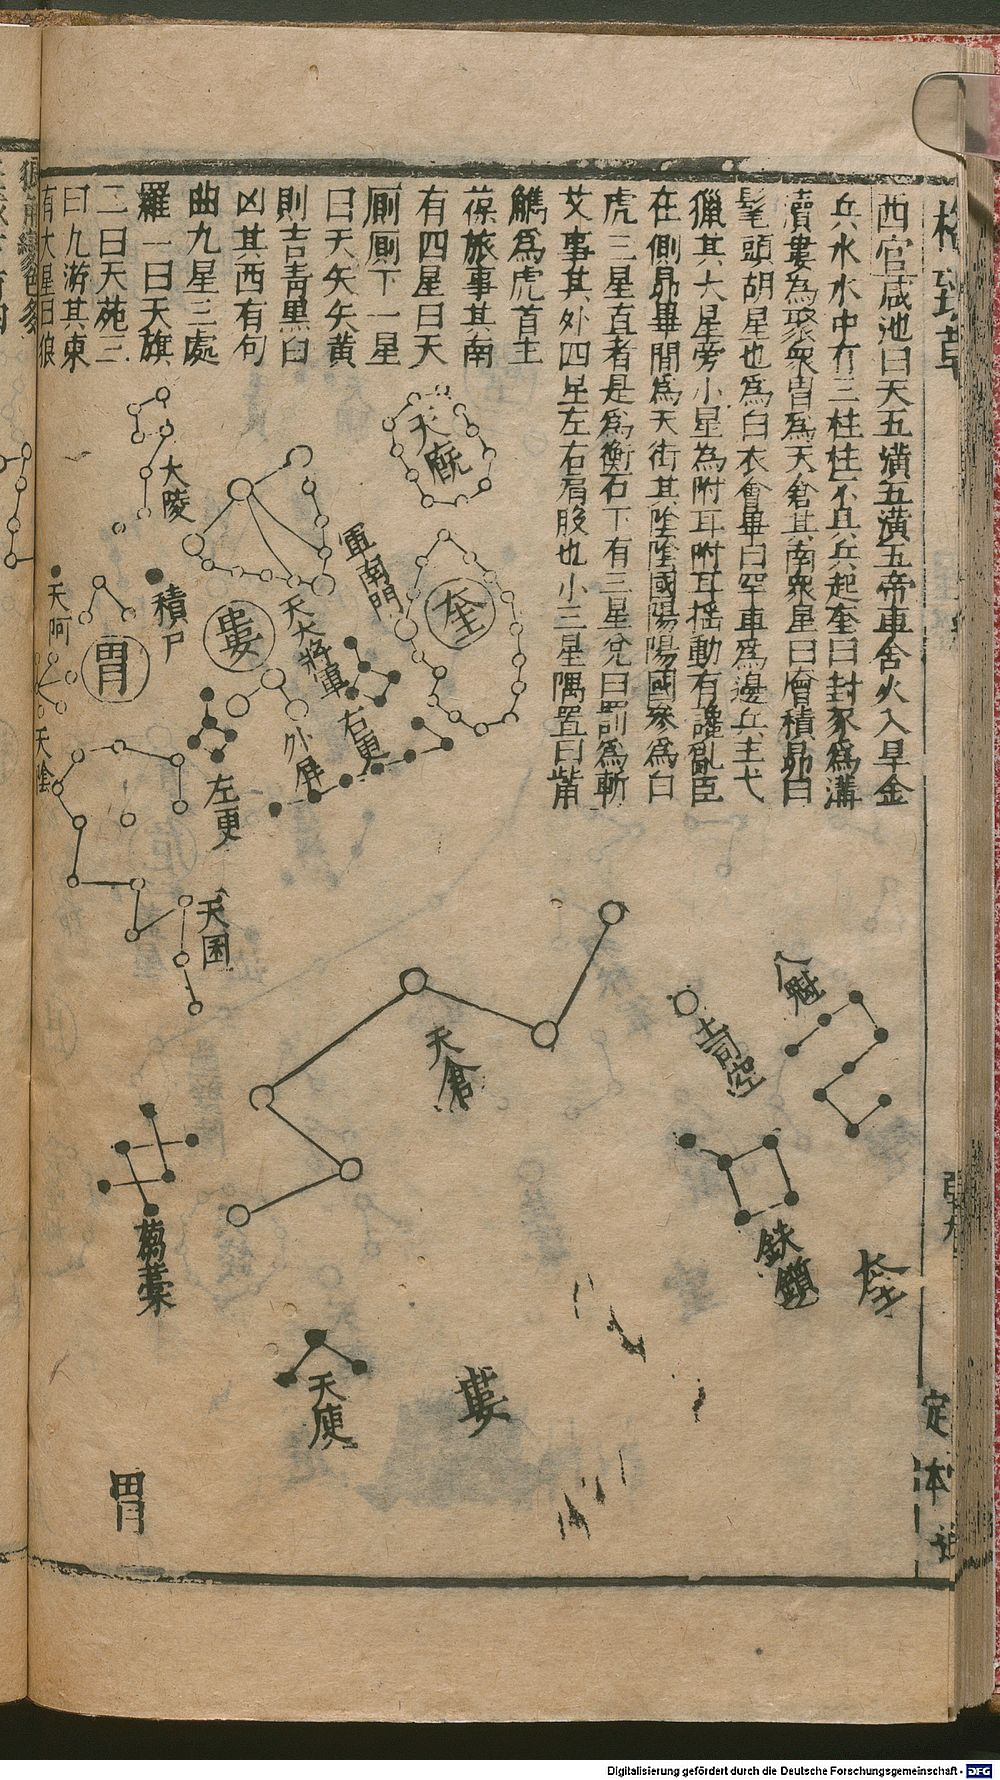 格致草
西官咸池曰天五潢五潢五帝車舍火入旱金
兵水水中有三柱柱不具兵起奎曰封豕為溝
瀆婁為聚衆胃為天倉其南衆星曰廥積昴曰
髦頭胡星也為白衣會畢曰罕車為邊兵主弋
獵其大星旁小星為附耳附耳搖動有讒亂臣
在側昴畢間為天街其陰陰國陽陽國參為白
虎三星直者是為衡石下有三星兌曰罰為斬
艾事其外四星左右肩股也小三星隅置曰觜
觿為虎首主
葆旅事其南
有四星曰天
厠厠下一星
曰天矢矢黃
則吉青黑白
凶其西有句
曲九星三處
羅一曰天旗
二曰天苑三
曰九游其東
有大星曰狼
天廐
大陵
軍南門
奎
天大將軍
婁
積尸
胃
天阿
天陰
右更
外屏
左更
天囷
天倉
八魁
土司空
鈇鑕
芻藁
天庾
奎
婁
胃
定本
Digitalisierung gefördert durch die Deutsche Forschungsgemeinschaft - DFG